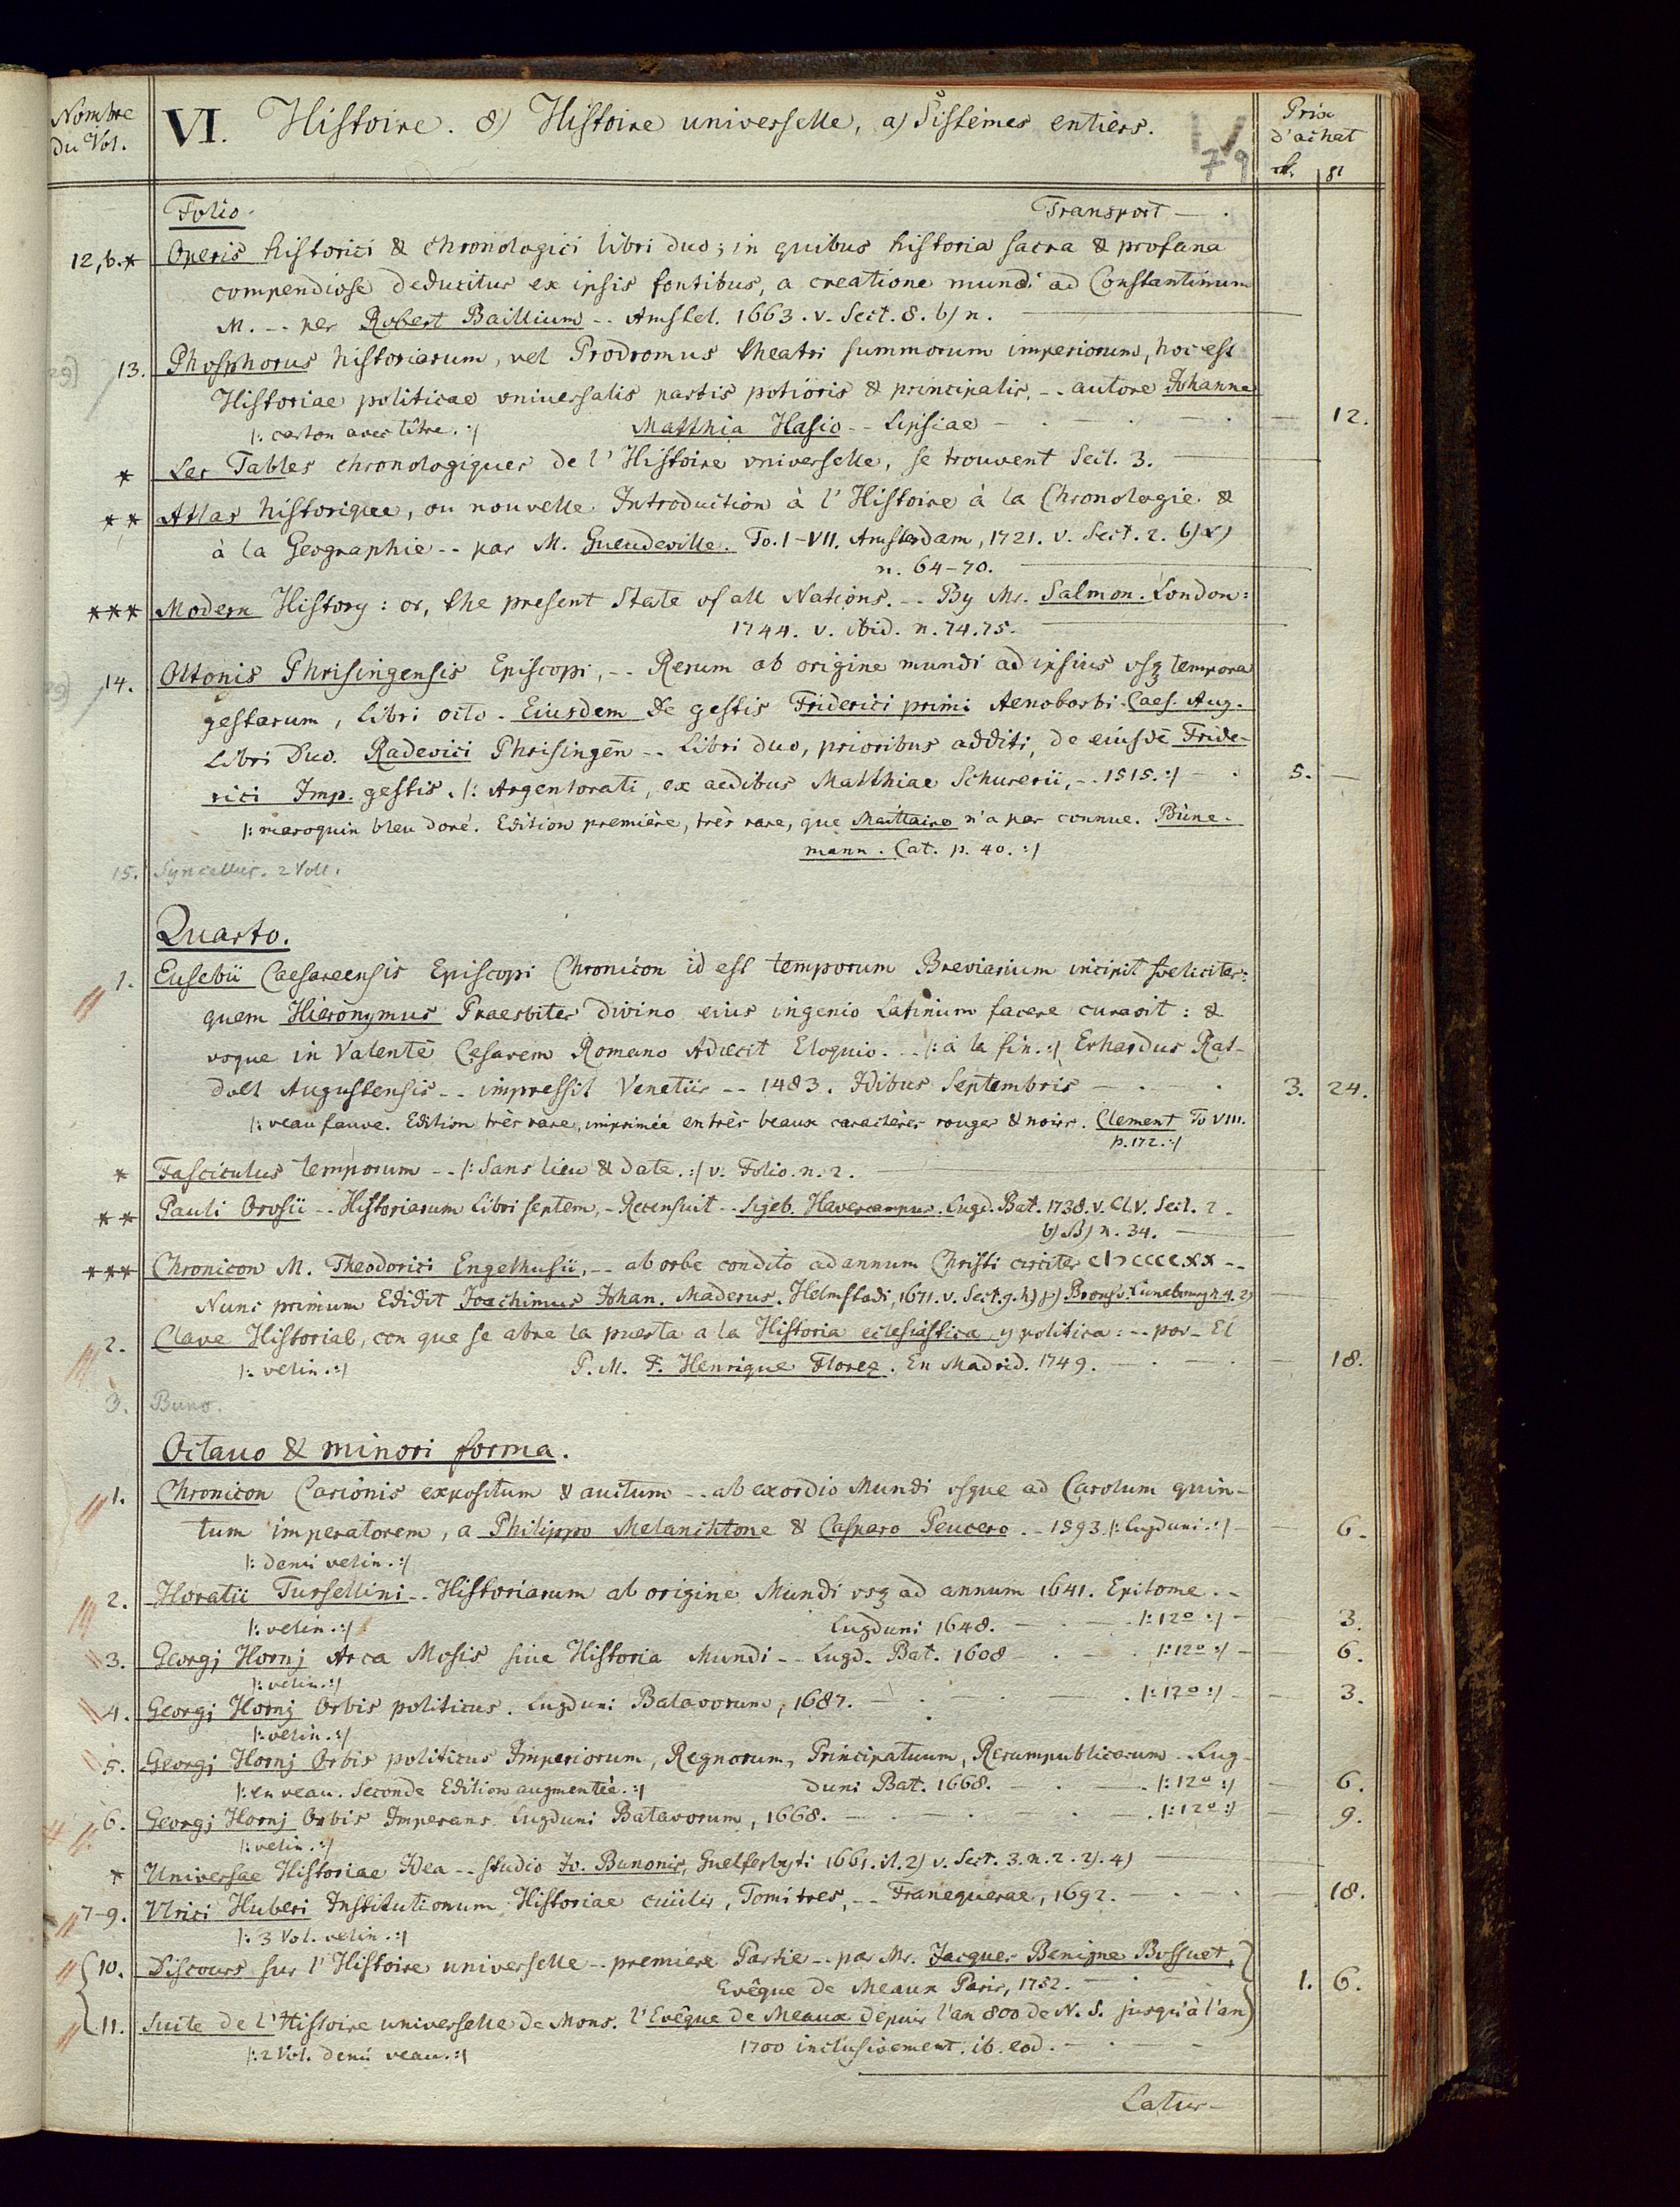 Nombre
du Vol.
VI. Histoire. 8) Histoire universelle, a) Sistemes entiers.
79
Prix
d'achat
Folio.
Transport — .
12,b.* Operis historici & chronologici libri duo; in quibus historia sacra & profana
compendiose deducitur ex ipsis fontibus, a creatione mundi ad Constantinum
M. -- per Robert Baillium -- Amstel. 1663. v. Sect. 8. b) n.
13. Phosphorus historiarum, vel Prodromus theatri summorum imperiorum, hoc est
Historiae politicae vniversalis partis potioris & principalis, -- autore Johanne
|: carton avec titre. :| Matthia Hasio -- Lipsiae — . — . — 12.
* Les Tables chronologiques de l'Histoire vniverselle, se trouvent Sect. 3.
** Atlas historique, ou nouvelle Introduction à l'Histoire à la Chronologie &
à la Geographie -- par M. Gueudeville. To. I-VII. Amsterdam, 1721. v. Sect. 2. b) α)
n. 64-70.
*** Modern History: or, the present State of all Nations. -- By Mr. Salmon. London:
1744. v. ibid. n. 74.75.
14. Ottonis Phrisingensis Episcopi, -- Rerum ab origine mundi ad ipsius vsq tempora
gestarum, Libri octo. Eiusdem De gestis Friderici primi Aenobarbi. Caes. Aug.
Libri Duo. Radevici Phrisingen̄ -- Libri duo, prioribus additi, de eiusdē Fride-
rici Imp. gestis. |: Argentorati, ex aedibus Matthiae Schurerii, -- 1515. :| — . 5. —
|: maroquin bleu doré. Edition première, très rare, que Maittaire n'a pas connue. Büne-
mann. Cat. p. 40. :|
15. Syncellus. 2 Voll.
Quarto.
1. Eusebii Caesareensis Episcopi Chronicon id est temporum Breviarium incipit foeliciter:
quem Hieronymus Praesbiter divino eius ingenio Latinum facere curavit: &
vsque in Valentē Cesarem Romano Adiecit Eloquio. -- |: à la fin. :| Erhardus Rat-
dolt Augustensis -- impressit Venetiis -- 1483. Idibus Septembris — . — . 3. 24.
|: veau fauve. Edition très rare, imprimée en très beaux caractères rouges & noirs. Clement To VIII.
p. 172. :|
* Fasciculus temporum -- |: Sans lieu & date. :| v. Folio. n. 2.
** Pauli Orosii -- Historiarum Libri septem, - Recensuit -- Sigeb. Havercampus. Lugd. Bat. 1738. v. Cl. V. Sect. 2.
b) β) n. 34.
*** Chronicon M. Theodorici Engelhusii, -- ab orbe condito ad annum Christi circiter cIↄccccxx --
Nunc primum Edidit Joachimus Johan. Maderus. Helmstadi, 1671. v. Sect. 9. h) Brunsv. Luneburg n. 4. 2)
2. Clave Historial, con que se abre la puerta a la Historia eclesiastica y politica: -- por - El
|: velin. :| P. M. F. Henrique Florez. En Madrid. 1749. — . — . — 18.
3. Buno.
Octavo & minori forma.
1. Chronicon Carionis expositum & auctum -- ab exordio Mundi vsque ad Carolum quin-
tum imperatorem, a Philippo Melanchtone & Casparo Peucero. - 1593. |: Lugduni. :| — 6.
|: demi velin. :|
2. Horatii Tursellini -- Historiarum ab origine Mundi vsq ad annum 1641. Epitome. -
|: velin. :| Lugduni 1648. — . — . |: 12º :| — 3.
3. Georgj Hornj Arca Mosis sive Historia Mundi -- Lugd. Bat. 1608 — . — . |: 12º :| — 6.
|: velin. :|
4. Georgj Hornj Orbis politicus. Lugduni Batavorum, 1687. — . — . |: 12º :| — 3.
|: velin. :|
5. Georgj Hornj Orbis politicus Imperiorum, Regnorum, Principatuum, Rerumpublicarum - Lug-
|: en veau. Seconde Edition augmentée. :| duni Bat. 1668. — . — . |: 12º :| — 6.
6. Georgj Hornj Orbis Imperans. Lugduni Batavorum, 1668. — . — . — . |: 12º :| — 9.
|: velin. :|
* Universae Historiae Idea -- studio Jo. Bunonis, Guelferbyti 1661. it. 2) v. Sect. 3. n. 2. 2). 4)
7-9. Vlrici Huberi Institutionum Historiae civilis, Tomi tres, -- Franequerae, 1692. — . — . — 18.
|: 3 Vol. velin. :|
10. Discours sur l'Histoire universelle -- premiere Partie -- par Mr. Jacques Benigne Bossuet,
Evêque de Meaux Paris, 1752. — . — 1. 6.
11. Suite de l'Histoire universelle de Mons. l'Evêque de Meaux depuis l'an 800 de N. S. jusqu'à l'an
|: 2 Vol. demi veau. :| 1700 inclusivement. ib. eod. — . —
Latus —